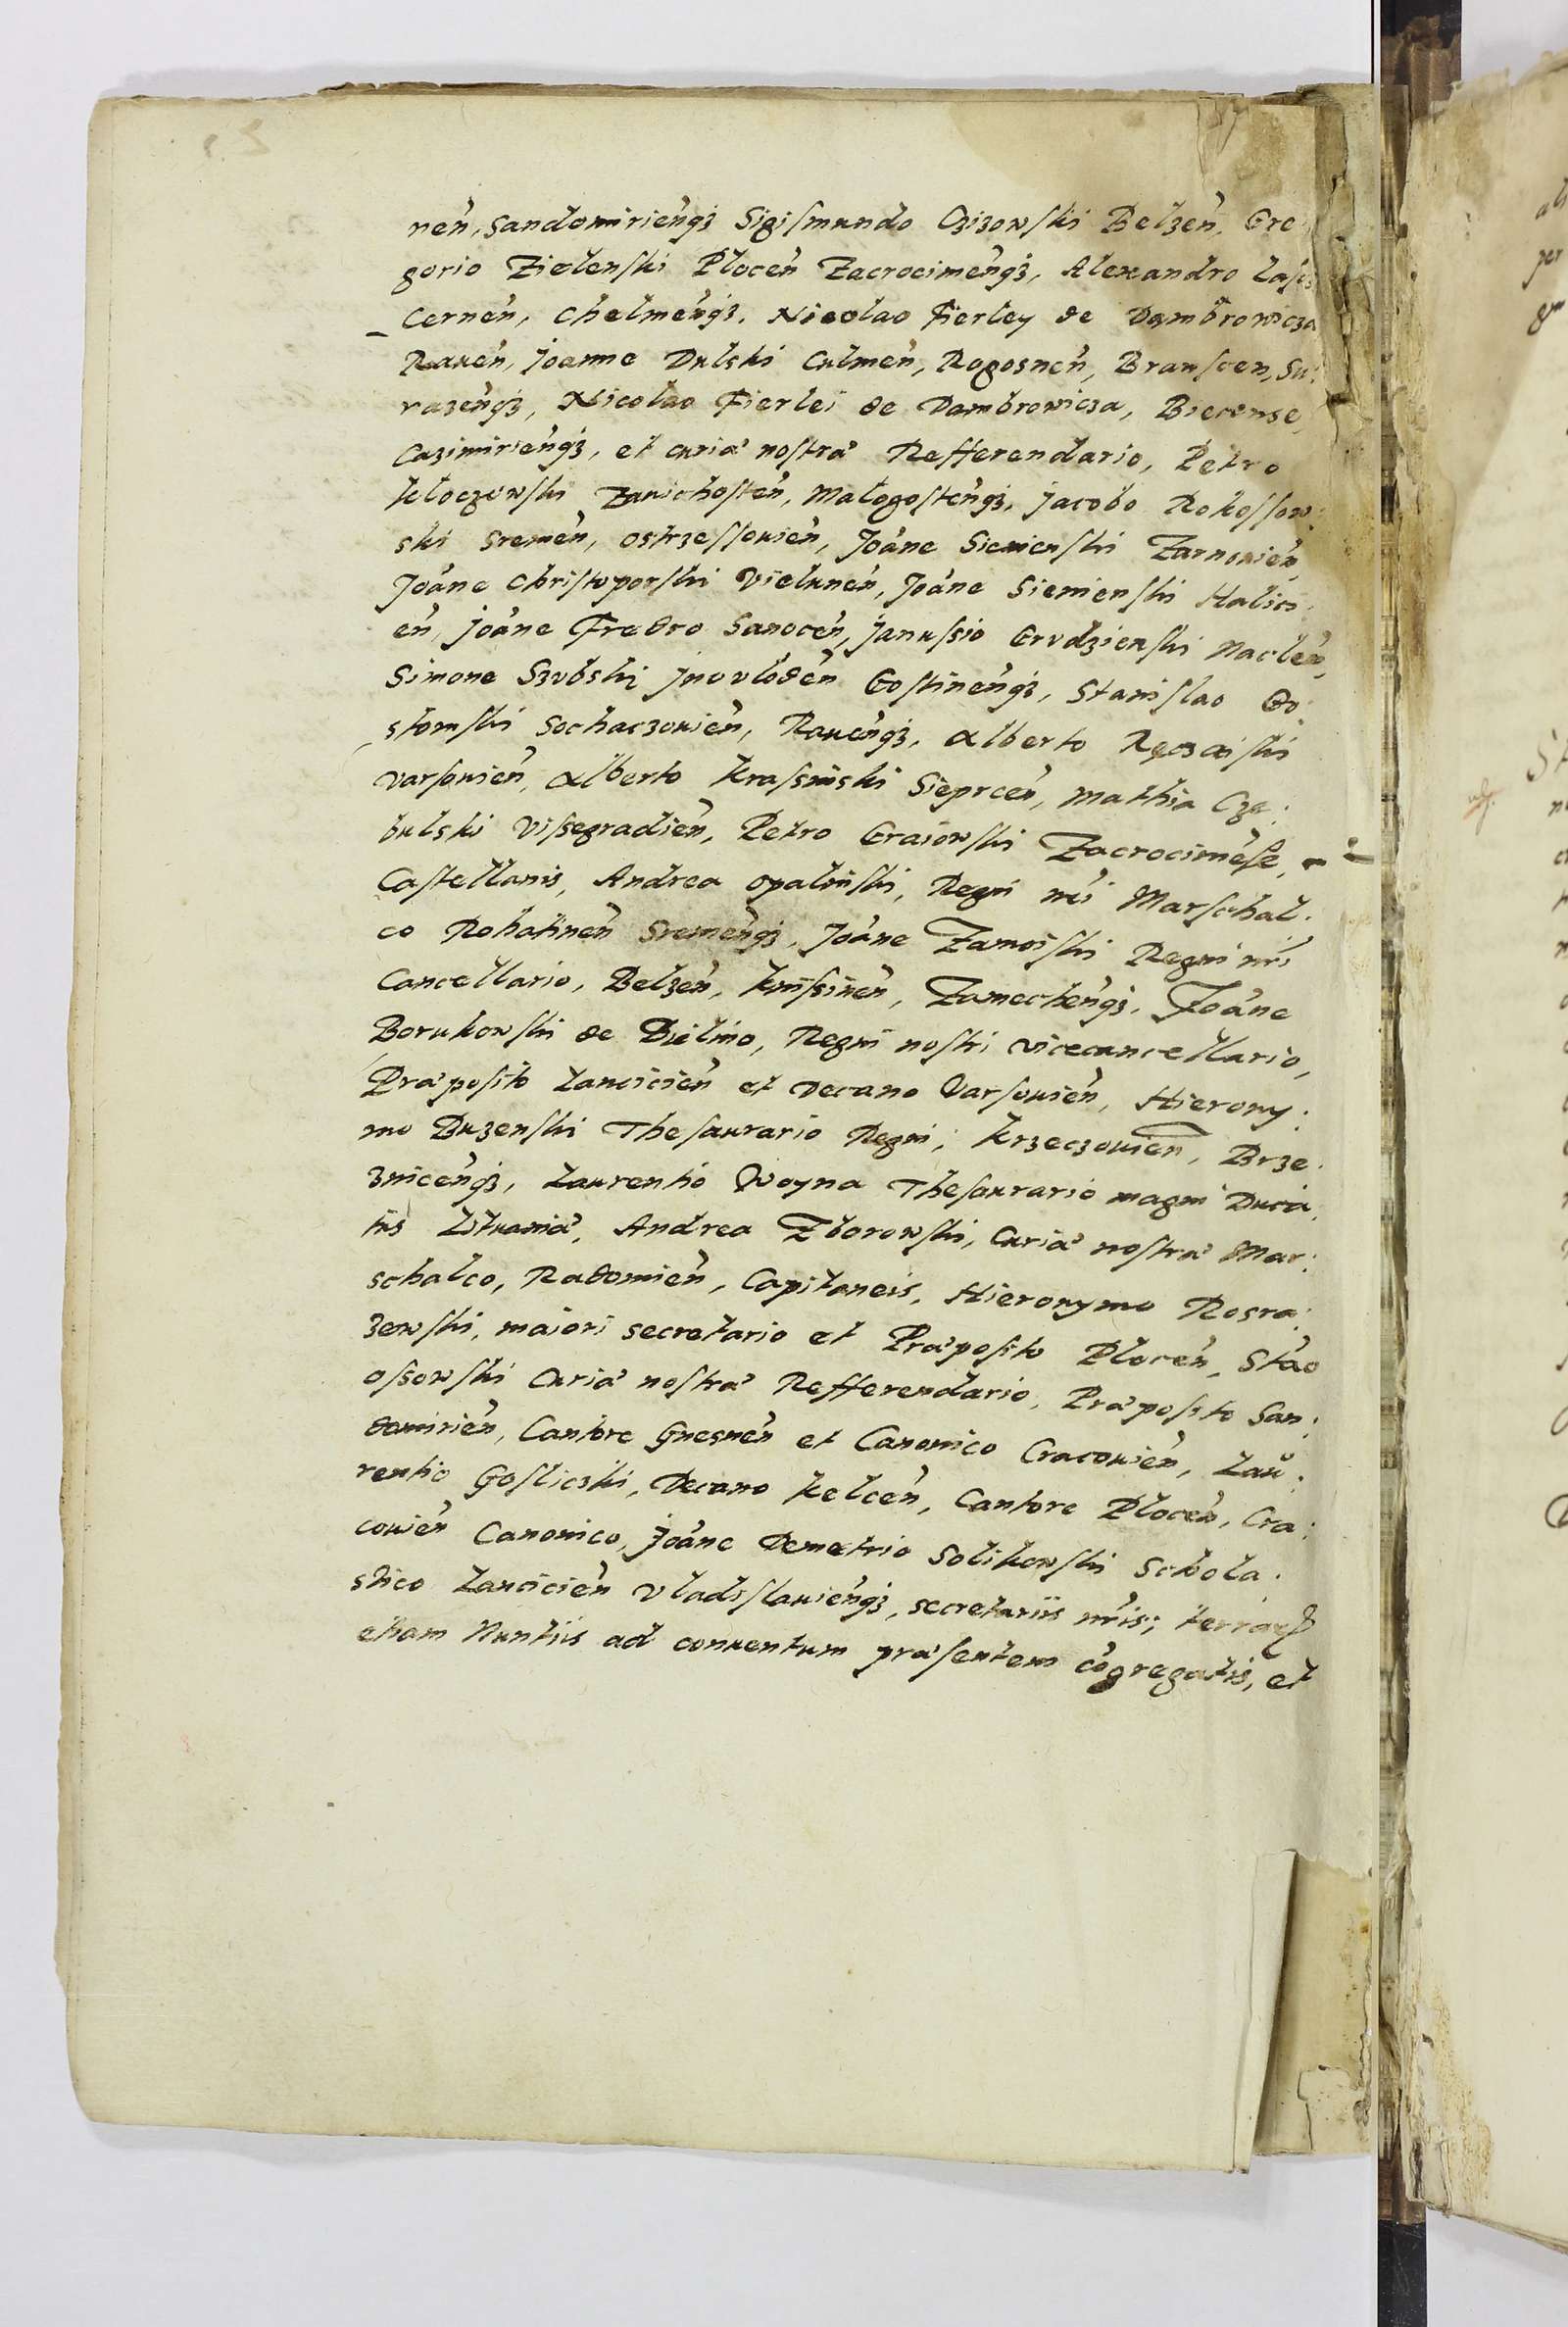 neń, Sandomirieńqȝ Sigiſmundo Czizowſki Belzeń, Gre:
gorio Zielenſki Ploceń Zacrocimeńqȝ, Alexandro Laſcz
Cerneń, Chelmeńqȝ. Nicolao Fierley de Dambrowicza
Raueń, Joanne Dulski Culmeń, Rogosneń, Branſcen, Su:
razeńqȝ, Nicolao Fierlei de Dambrowicza, Biecense,
Cazimirieńqȝ, et curiæ noſtræ Refferendario, Petro
Kloczowſki Zauichoſteń, Malogoſteńqȝ, Jacobo Rokoſſow:
ski Sremeń, Ostrzeſſouień, Joāne Sienienſki Zarnouień,
Joāne Chriſtoporſki Vieluneń, Joāne Siemienſki Halici:
eń, Joāne Fredro Sanoceń, Januſsio Grvdzienſki Nacleń,
Simone Szvbſki Jnovlodeń Goſtineńqȝ, Stanislao Go:
stomſki Sochaczouień, Raueńqȝ, Alberto Ręczaiſki
Varſouień, Alberto Kraſsinſki Sieprceń, Mathia Cze:
bulski Viſsegradień, Petro Graiowſki Zacrocimēſe,
Caſtellanis, Andrea Opalinſki, Regni nr̄i Marſchal:
co Rohatineń Sremeńqȝ, Joāne Zamoiſki Regni nr̄i
Cancellario, Belzeń, Kniſsineń, Zamecheńqȝ, Joāne
Borukowſki de Bielino, Regni noſtri Vicecancellario,
Præpoſito Lancicień et Decano Varſouień, Hierony:
mo Buzenſki Theſaurario Regni, Krzeczouień, Brze:
zniceńqȝ, Laurentio Woyna Theſaurario magni Duca:
tus Lituaniæ, Andrea Zborowſki, Curiæ noſtræ Mar:
schalco, Radomień, Capitaneis, Hieronymo Rosra:
zewſki, maiori secretario et Præpoſito Ploceń, Stāo
Oſsowſki Curiæ noſtræ Refferendario, Præpoſito San:
domirień, Cantore Gnesneń et Canonico Cracouień, Lau:
rentio Goſlicski, Decano Kelceń, Cantore Ploceń, Cra:
couień Canonico, Joāne Demetrio Solikowſki Schola:
stico Lancicień Vladiſlauieńqȝ, secretariis nr̄is; terraꝝ
etiam Nuntiis ad conuentum præſentem cōgregatis, et